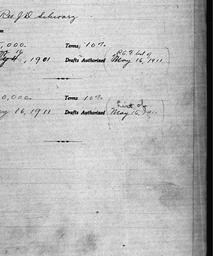 Rev. J. D. Schwarz
,000. Terms, 10%
, 1901 Drafts Authorized May 16, 1911
0,000. Terms 10%
16, 1911 Drafts Authorized List of May 16,